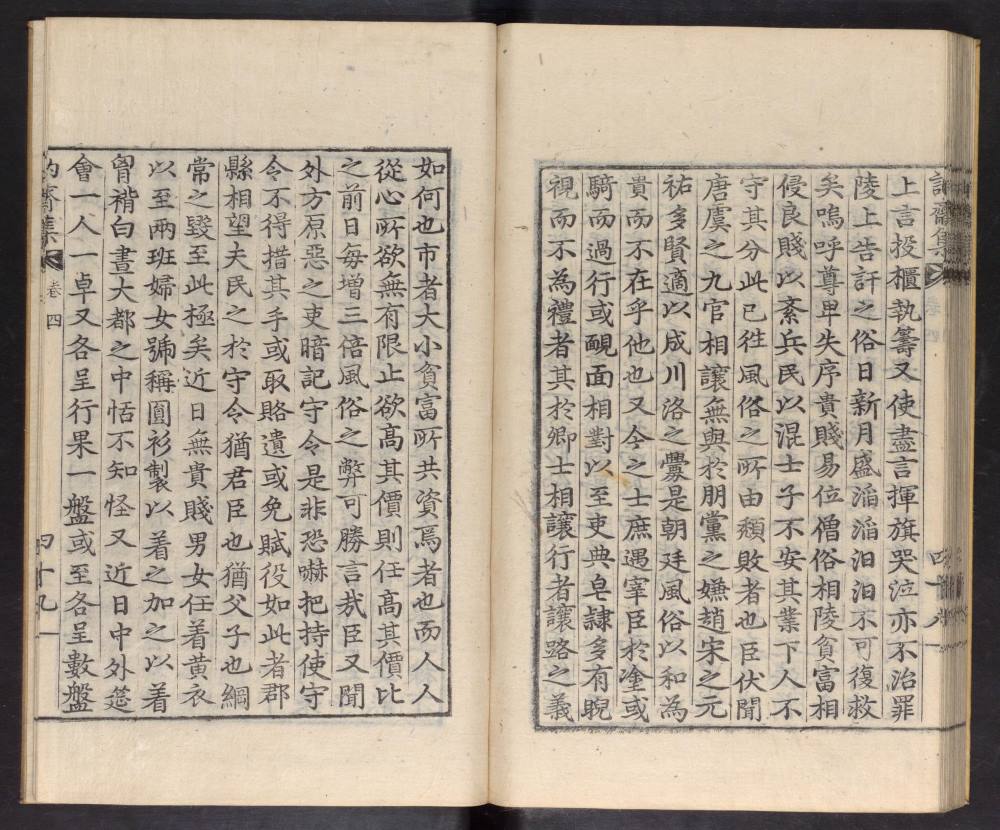 上言投櫃執籌又使盡言揮旗哭泣亦不治罪
陵上告訐之俗日新月盛滔滔汨汨不可復救
矣嗚呼尊卑失序貴賤易位僧俗相陵貧富相
侵良賤以紊兵民以混士子不安其業下人不
守其分此已徃風俗之所由頹敗者也臣伏聞
唐虞之九官相讓無與於朋黨之嫌趙宋之元
祐多賢適以成川洛之釁是朝廷風俗以和為
貴而不在乎他也又今之士庶遇宰臣於塗或
騎而過行或靦面相對以至吏典皂隷多有睨
視而不為禮者其於卿士相讓行者讓路之義
如何也市者大小貧富所共資焉者也而人人
從心所欲無有限止欲高其價則任高其價比
之前日每增三倍風俗之弊可勝言哉臣又聞
外方原惡之吏暗記守令是非恐嚇把持使守
令不得措其手或取賂遺或免賦役如此者郡
縣相望夫民之於守令猶君臣也猶父子也綱
常之毀至此極矣近日無貴賤男女任着黄衣
以至兩班婦女號稱圓衫製以着之加之以着
胷褙白晝大都之中恬不知怪又近日中外筵
會一人一卓又各呈行果一盤或至各呈數盤
訥齋集 卷四 四十九